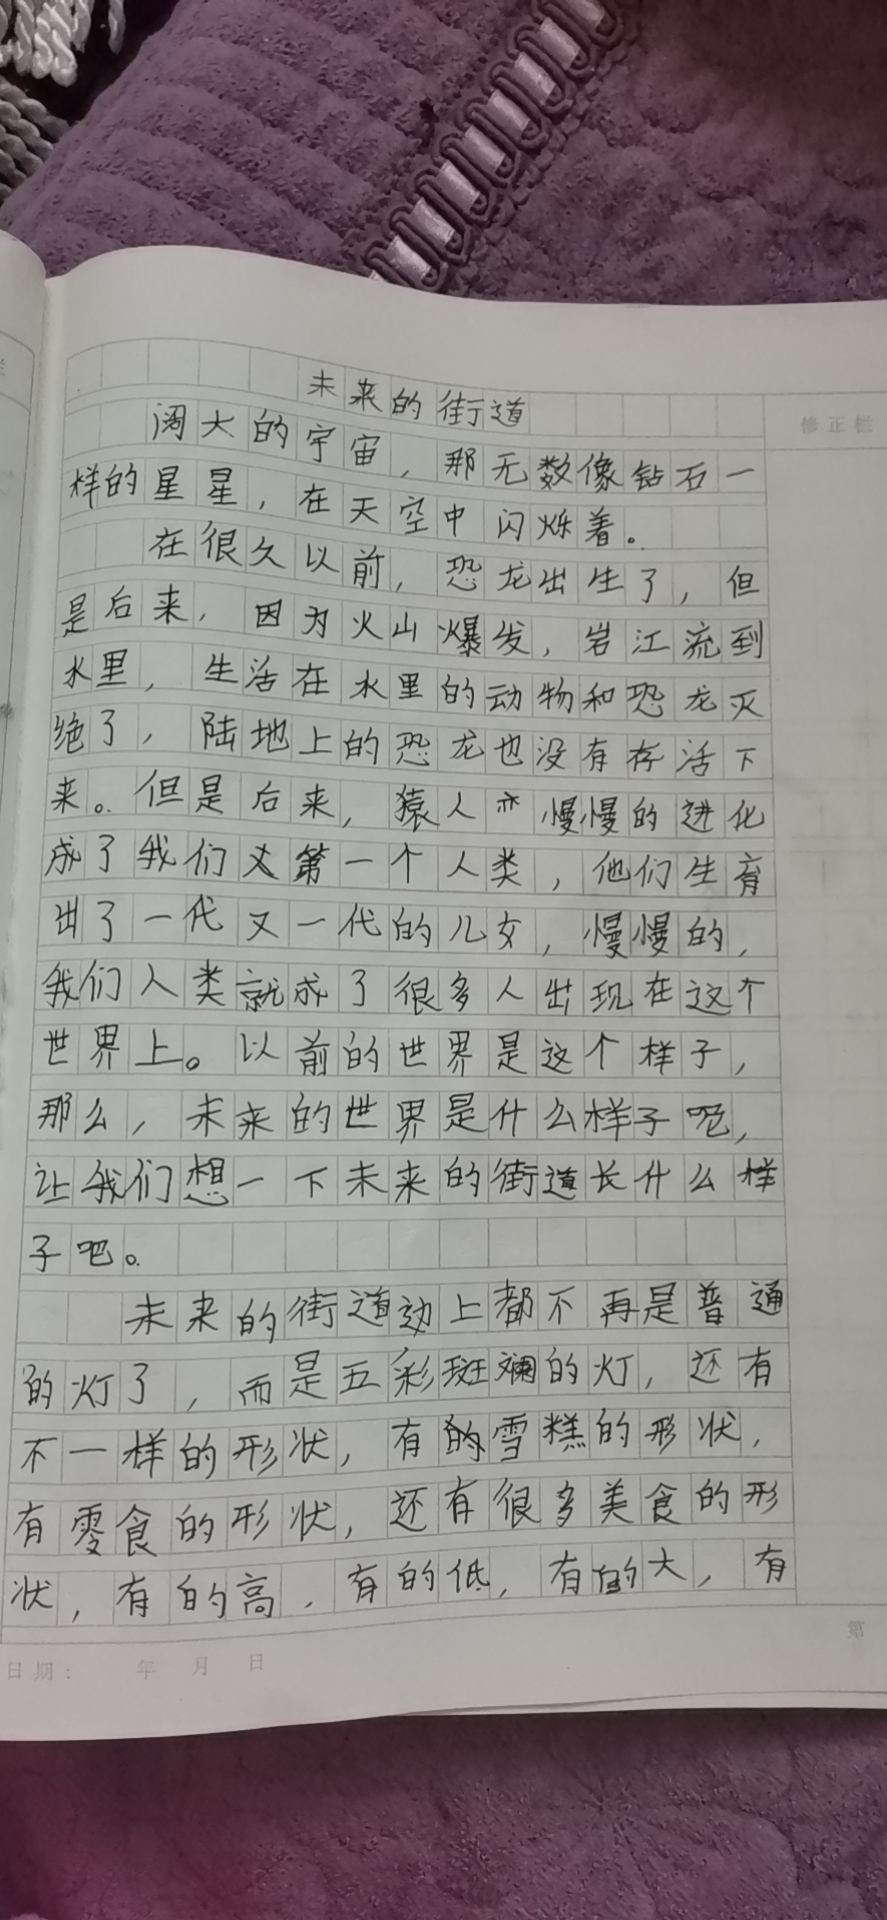 未来的街道
阔大的宇宙，那无数像钻石一
样的星星，在天空中闪烁着。
在很久以前，恐龙出生了，但
是后来，因为火山爆发，岩江流到
水里，生活在水里的动物和恐龙灭
绝了，陆地上的恐龙也没有存活下
来。但是后来，猿人亦慢慢的进化
成了我们第一个人类，他们生育
出了一代又一代的儿女，慢慢的，
我们人类就成了很多人出现在这个
世界上。以前的世界是这个样子，
那么，未来的世界是什么样子呢，
让我们想一下未来的街道长什么样
子吧。
未来的街道边上都不再是普通
的灯了，而是五彩斑斓的灯，还有
不一样的形状，有的雪糕的形状，
有零食的形状，还有很多美食的形
状，有的高，有的低，有的大，有
修正栏
第
日期： 年 月 日